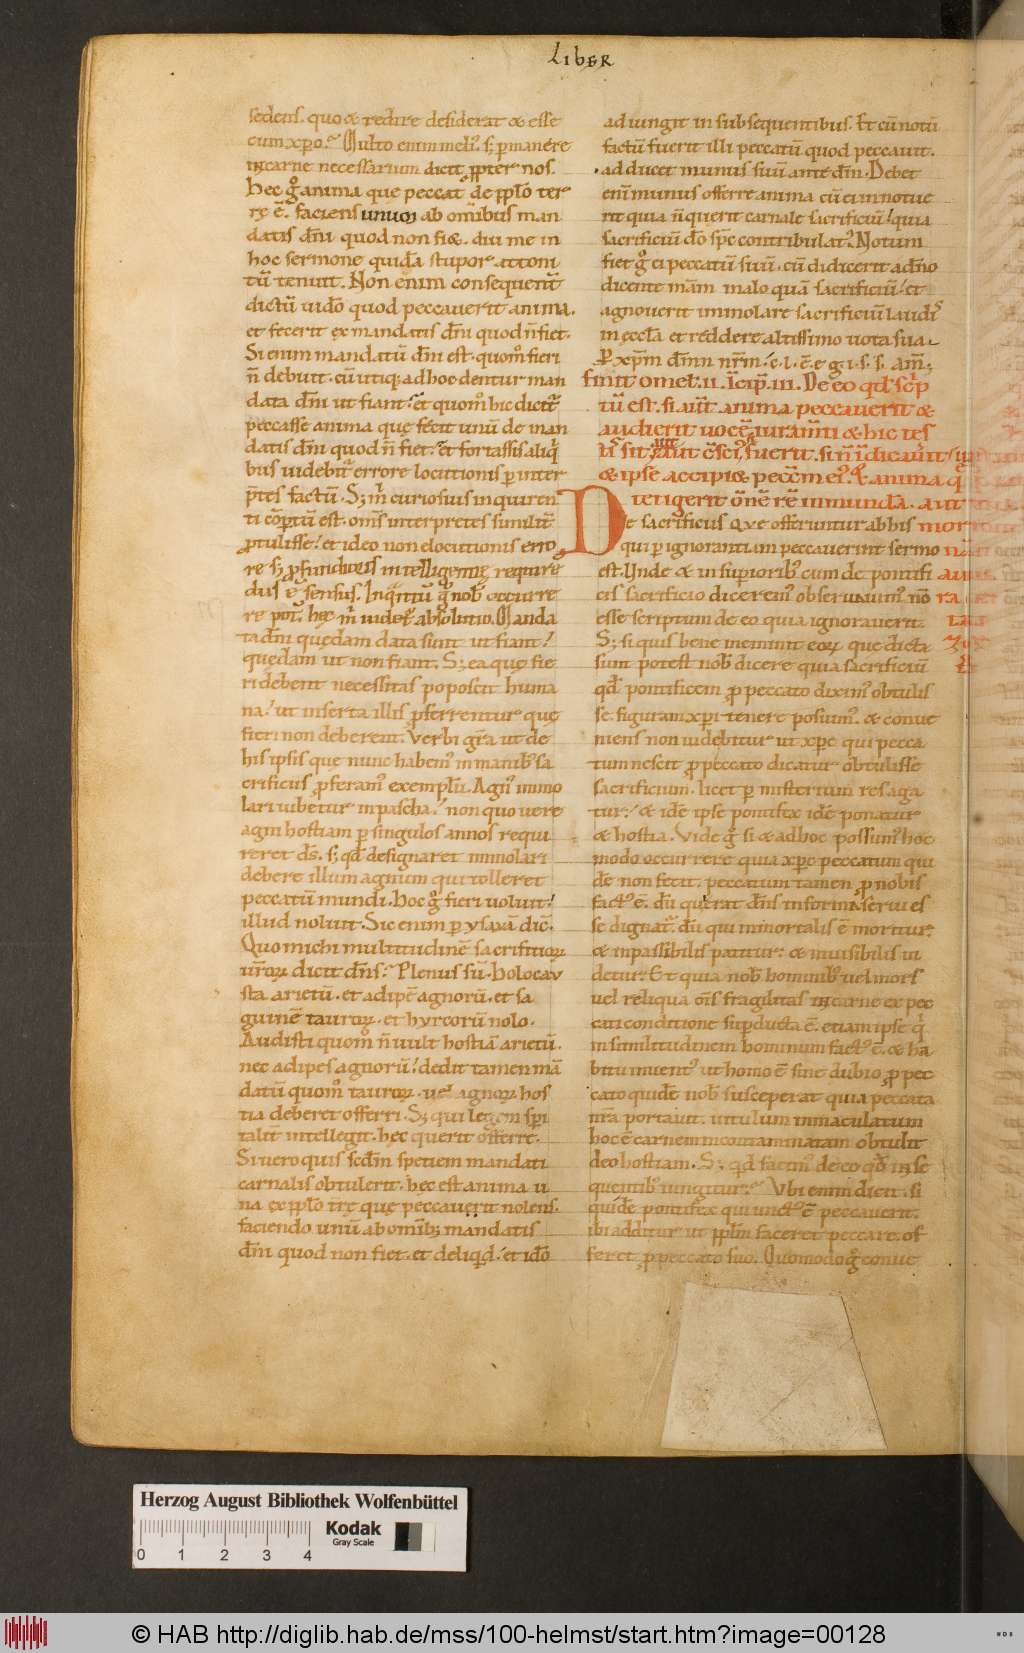 LIBER
sedens. quo & redire desiderat & esse
cum xpo. Multo enim meli'. s; pmanere
incarne necessarium dicit ppter nos.
Hec g° anima que peccat de pplo ter
rę ē. faciens unum ab omībus man
datis dn̄i quod non fi&. diu me in
hoc sermone quidā stupor attoni
tū tenuit. Non enim consequent̄
dictū uidō quod peccauerit anima.
et fecerit ex mandatis dn̄i quod n̄ fiet.
Si enim mandatū dn̄i est. quom° fieri
n̄ debuit. cū utiq; ad hoc dentur man
data dn̄i ut fiant. et quom° hic dictt̄
peccasse anima quę fecit unū de man
datis dn̄i quod n̄ fiet. et fortassis aliq'
bus uidebit' errore locutionis p inter
p̄tes factū. S; m' curiosius inquiren
ti cōptū est. oms interpretes similit̄
ptulisse. et ideo non elocutionis erro
re s; pfundioris intelligentię require
dus ē sensus. Inq̄ntū g° nob' occurre
re pot'. hęc m' uidet' absolutio. Manda
ta dn̄i quędam data sunt ut fiant.
quędam ut non fiant. S; ea quę fie
ri debent necessitas poposcit huma
na. ut inserta illis pferrentur quę
fieri non deberent. Verbi gr̄a ut de
his ipsis que nunc habem' in manib' sa
crificiis pferam' exemplū. Agn' immo
lari iubetur in pascha. non quo uere
agni hostiam p singulos annos requi
reret ds̄. s; qd designaret immolari
debere illum agnum qui tolleret
peccatū mundi. Hoc g° fieri uoluit.
illud noluit. Sic enim p ysayā dic̄.
Quo michi multitudinē sacrificioꝝ
ur̄oꝝ dicit dn̄s. Plenus sū. Holocau
sta arietū. et adipē agnorū. et sa
guinē tauroꝝ. et hyrcorū nolo.
Audisti quom° n̄ uult hostiā arietū.
nec adipes agnorū. dedit tamen mā
datū quom° tauroꝝ. uel agnoꝝ hos
tia deberet offerri. S; qui legem spi
talit̄ intellegit. hęc querit offerre.
Si uero quis scdm̄ speciem mandati
carnalis obtulerit. hęc est anima u
na ex pplo tr̄ę quę peccauerit nolens.
faciendo unū ab omīb; mandatis
dn̄i quod non fiet. et deliqd. et idō
adiungit in subsequentibus. Et cū notū
factū fuerit illi peccatū quod peccauit.
adducet munus suū ante dn̄m. Debet
eni' munus offerre anima cū ei innotue
rit quia n̄ querit carnale sacrificiū. quia
sacrificiū dō sp̄c contribulat'. Notum
fiet g° ei peccatū suū. cū didicerit a dn̄o
dicente mīam malo quā sacrificiū. et
agnouerit immolare sacrificiū laudis
in eccl̄a et reddere altissimo uota sua
P xpm̄ dn̄m nr̄m. c. i. ē. e g i. s. s. am̄.
finit omel. II. Icip. III. De eo qd scrip
tū est. si aut̄ anima peccauerit &
audierit uocē iuram̄ti & hic tes
tis sit aut c̄sci' fuerit. si n̄ idicauit
& ipse accipi& peccm̄ ei'. & anima q̄
tetigerit om̄ē rē inmundā. aut
De sacrificiis que offeruntur ab his mor
qui p ignorantiam peccauerint sermo
est. Unde & in supiorib' cum de pontifi
cis sacrificio dicerem' obseruauim' nō
esse scriptum de eo quia ignorauerit.
S; si quis bene meminit eoꝝ que dicta
sunt potest nob' dicere quia sacrificiū
qd pontificem p peccato dixim' obtulis
se. figuram xpi tenere posuim'. & conue
niens non uidebitur ut xpc qui pecca
tum nescit p peccato dicatur obtulisse
sacrificium. licet p misterium res aga
tur. & idē ipse pontifex idē ponatur
& hostia. Vide g° si & ad hoc possum' hoc
modo occurrere quia xpc peccatum qui
dē non fecit. peccatum tamen p nobis
fact' ē. dū qui erat dn̄s in forma serui es
se dignat'. dū qui inmortalis ē moritur.
& inpassibilis patitur. & inuisibilis ui
detur. Et quia nob' hominib' uel mors
uel reliqua om̄is fragilitas in carne ex pec
cati conditione supducta ē. etiam ipse q'
in similitudinem hominum fact' ē. & ha
bitu inuent' ut homo ē sine dubio p pec
cato quod nob' susceperat quia peccata
nr̄a portauit. uitulum inmaculatum
hoc ē carnem incontaminatam obtulit
deo hostiam. S; qd facim' de eo qd in se
quentib' iungitur. Vbi enim dicit. si
quidē pontifex qui unct' ē peccauerit.
ibi additur ut pplm̄ faceret peccare. of
feret p peccato suo. Quomodo g° conue
Herzog August Bibliothek Wolfenbüttel
Kodak
Gray Scale
0 1 2 3 4
© HAB http://diglib.hab.de/mss/100-helmst/start.htm?image=00128